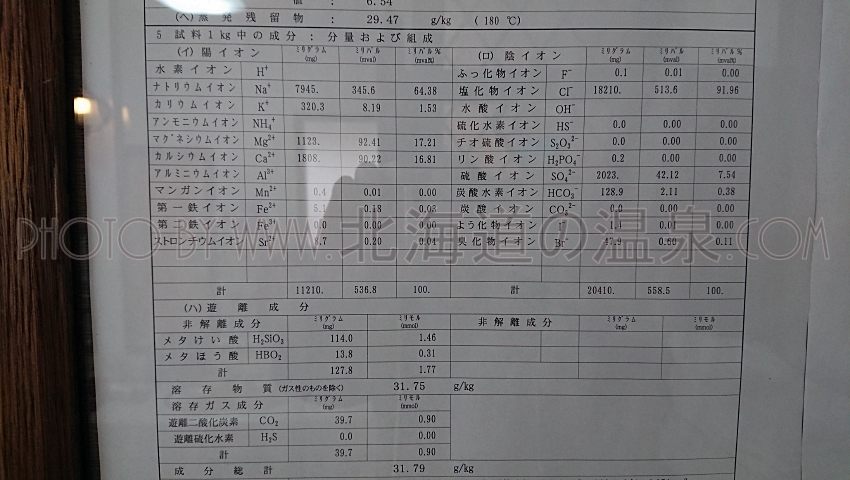 値 : 6.54
(ヘ) 蒸発残留物 : 29.47 g/kg (180 ℃)
5 試料1kg中の成分 : 分量および組成
(イ) 陽イオン ミリグラム (mg) ミリバル (mval) ミリバル% (mval%) (ロ) 陰イオン ミリグラム (mg) ミリバル (mval) ミリバル% (mval%)
水素イオン H⁺ ふっ化物イオン F⁻ 0.1 0.01 0.00
ナトリウムイオン Na⁺ 7945. 345.6 64.38 塩化物イオン Cl⁻ 18210. 513.6 91.96
カリウムイオン K⁺ 320.3 8.19 1.53 水酸イオン OH⁻
アンモニウムイオン NH₄⁺ 硫化水素イオン HS⁻ 0.0 0.00 0.00
マグネシウムイオン Mg²⁺ 1123. 92.41 17.21 チオ硫酸イオン S₂O₃²⁻ 0.0 0.00 0.00
カルシウムイオン Ca²⁺ 1808. 90.22 16.81 リン酸イオン H₂PO₄⁻ 0.2 0.00 0.00
アルミニウムイオン Al³⁺ 硫酸イオン SO₄²⁻ 2023. 42.12 7.54
マンガンイオン Mn²⁺ 0.4 0.01 0.00 炭酸水素イオン HCO₃⁻ 128.9 2.11 0.38
第一鉄イオン Fe²⁺ 5.1 0.18 0.03 炭酸イオン CO₃²⁻ 0.0 0.00 0.00
第二鉄イオン Fe³⁺ 0.0 0.00 0.00 よう化物イオン I⁻ 0.01 0.00
ストロンチウムイオン Sr²⁺ 8.7 0.20 0.04 臭化物イオン Br⁻ 47.9 0.60 0.11
PHOTO BY WWW.北海道の温泉.COM
計 11210. 536.8 100. 計 20410. 558.5 100.
(ハ) 遊離成分
非解離成分 ミリグラム (mg) ミリモル (mmol) 非解離成分 ミリグラム (mg) ミリモル (mmol)
メタけい酸 H₂SiO₃ 114.0 1.46
メタほう酸 HBO₂ 13.8 0.31
計 127.8 1.77
溶存物質 (ガス性のものを除く) 31.75 g/kg
溶存ガス成分 ミリグラム (mg) ミリモル (mmol)
遊離二酸化炭素 CO₂ 39.7 0.90
遊離硫化水素 H₂S 0.0 0.00
計 39.7 0.90
成分総計 31.79 g/kg